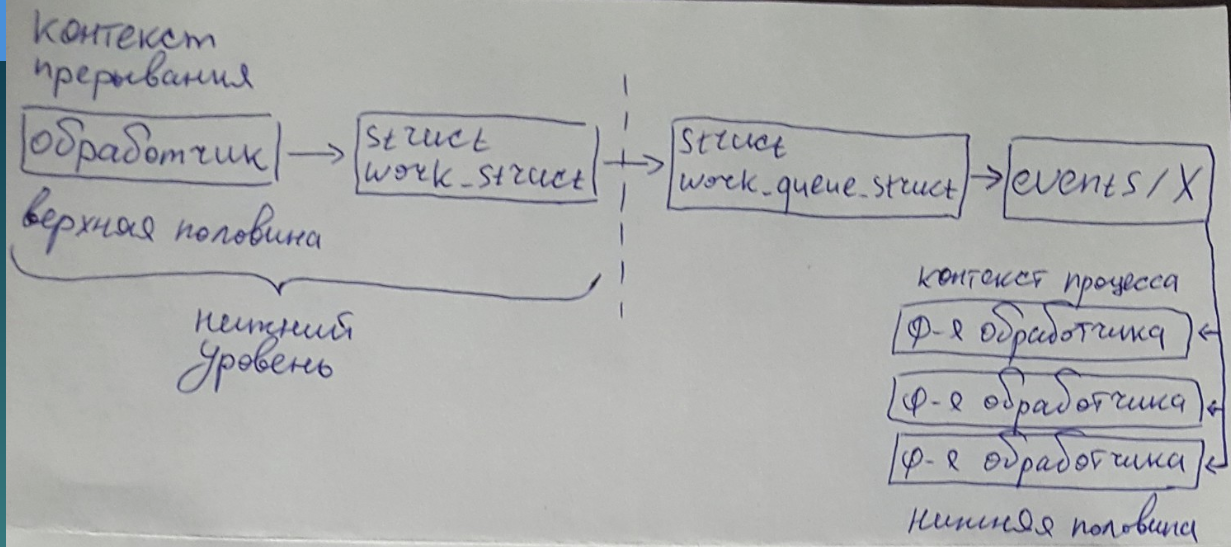 контекст
прерывания
обработчик
struct
work_struct
struct
work_queue_struct
events/X
верхная половина
нижний
уровень
контекст процесса
ф-я обработчика
ф-я обработчика
ф-я обработчика
нижняя половина